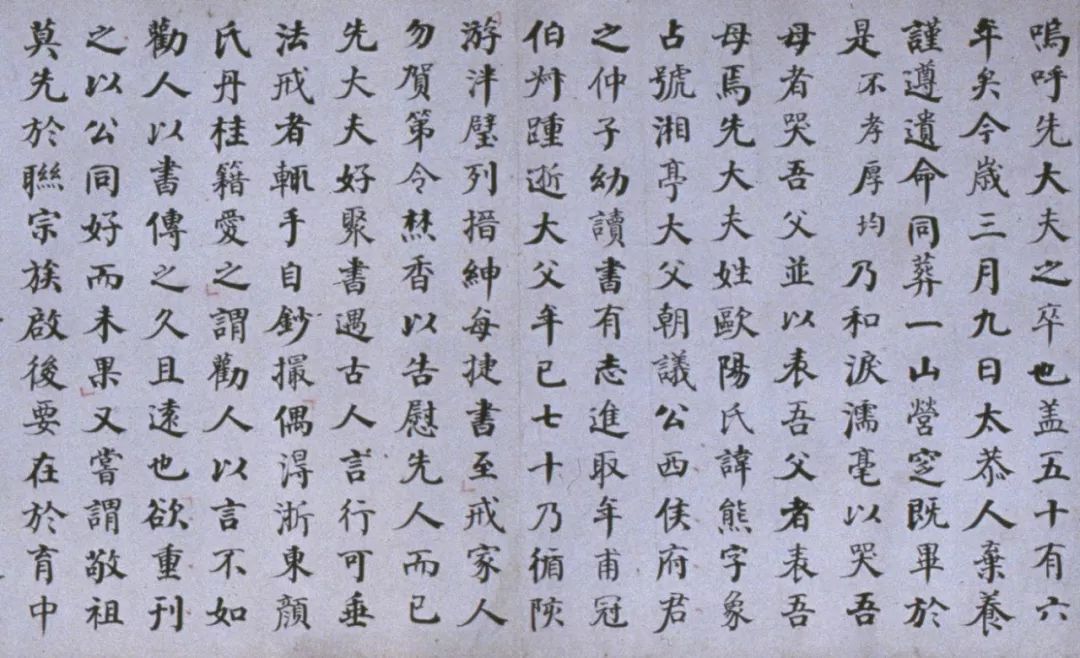 嗚呼先大夫之卒也盖五十有六
年矣今歲三月九日太恭人棄養
謹遵遺命同葬一山營窆既畢於
是不孝厚均乃和淚濡毫以哭吾
母者哭吾父並以表吾父者表吾
母焉先大夫姓歐陽氏諱熊字象
占號湘亭大父朝議公西侯府君
之仲子幼讀書有志進取年甫冠
伯踵逝大父年已七十乃循陔
游泮璧列搢紳每捷書至戒家人
勿賀第令焚香以告慰先人而已
先大夫好聚書遇古人言行可垂
法戒者輒手自鈔撮偶得浙東顏
氏丹桂籍愛之謂勸人以言不如
勸人以書傳之久且遠也欲重刊
之以公同好而未果又嘗謂敬祖
莫先於聯宗族啟後要在於育中